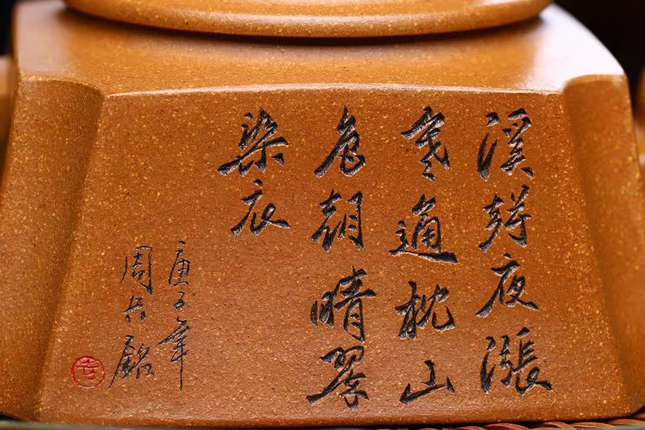 溪聲夜漲
寒通枕山
色朝晴翠
染衣
庚子年
周銘